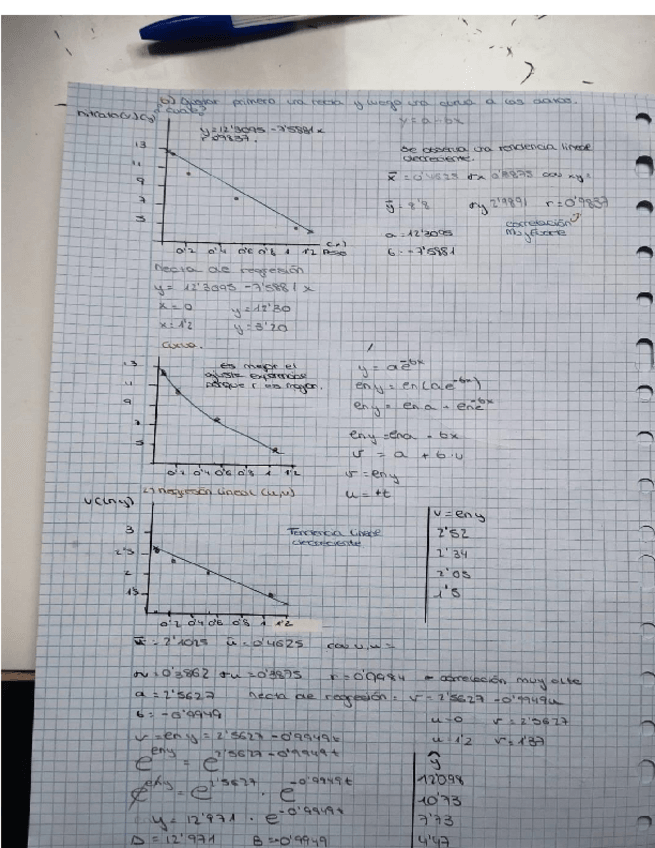 a) Ajustar primero una recta y luego una curva a los datos.
y = a - bx
y = 12'3095 - 7'5881x
r = 0'9837
Se observa una tendencia lineal
decreciente.
x̄ = 0'4625 σx 0'3875 cov xy =
ȳ = 8'8 σy 2'9891 r = 0'9837
a = 12'3095 correlación
muy fuerte
b = -7'5881
13
11
9
7
5
0'2 0'4 0'6 0'8 1 1'2 Peso
Recta de regresión
y = 12'3095 - 7'5881x
x = 0 y = 12'30
x = 1'2 y = 3'20
Curva.
es mejor el
ajuste exponencial
porque r es mayor.
y = ae^-bx
ln y = ln(ae^-bx)
ln y = ln a + ln e^-bx
ln y = ln a - bx
v = a + b·u
v = ln y
u = +t
13
11
9
7
5
0'2 0'4 0'6 0'8 1 1'2
Regresión lineal (u,v)
v(ln y)
Tendencia lineal
decreciente
3
2'5
2
1'5
0'2 0'4 0'6 0'8 1 1'2
v = ln y
2'52
2'34
2'05
1'5
v̄ = 2'1025 ū = 0'4625 cov u,v =
σv = 0'3862 σu = 0'3875 r = 0'9984 → correlación muy alta
a = 2'5627 Recta de regresión = v = 2'5627 - 0'9949u
b = -0'9949 u = 0 v = 2'5627
v = ln y = 2'5627 - 0'9949t u = 1'2 v = 1'37
e^ln y = e^2'5627 - 0'9949t
e^ln y = e^2'5627 · e^-0'9949t
y = 12'971 · e^-0'9949t
A = 12'971 B = -0'9949
ŷ
12'098
10'73
7'73
4'47